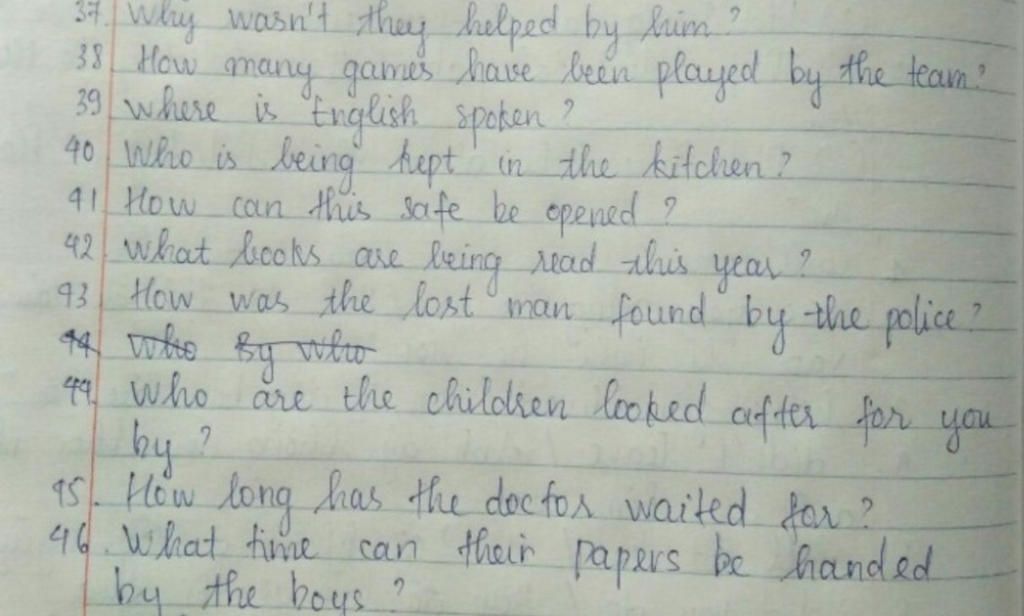 37. Why wasn't they helped by him?
38 How many games have been played by the team?
39 Where is English spoken?
40 Who is being kept in the kitchen?
41 How can this safe be opened?
42 What books are being read this year?
43 How was the lost man found by the police?
44 Who By who
44 Who are the children looked after for you
by?
45. How long has the doctor waited for?
46. What time can their papers be handed
by the boys?